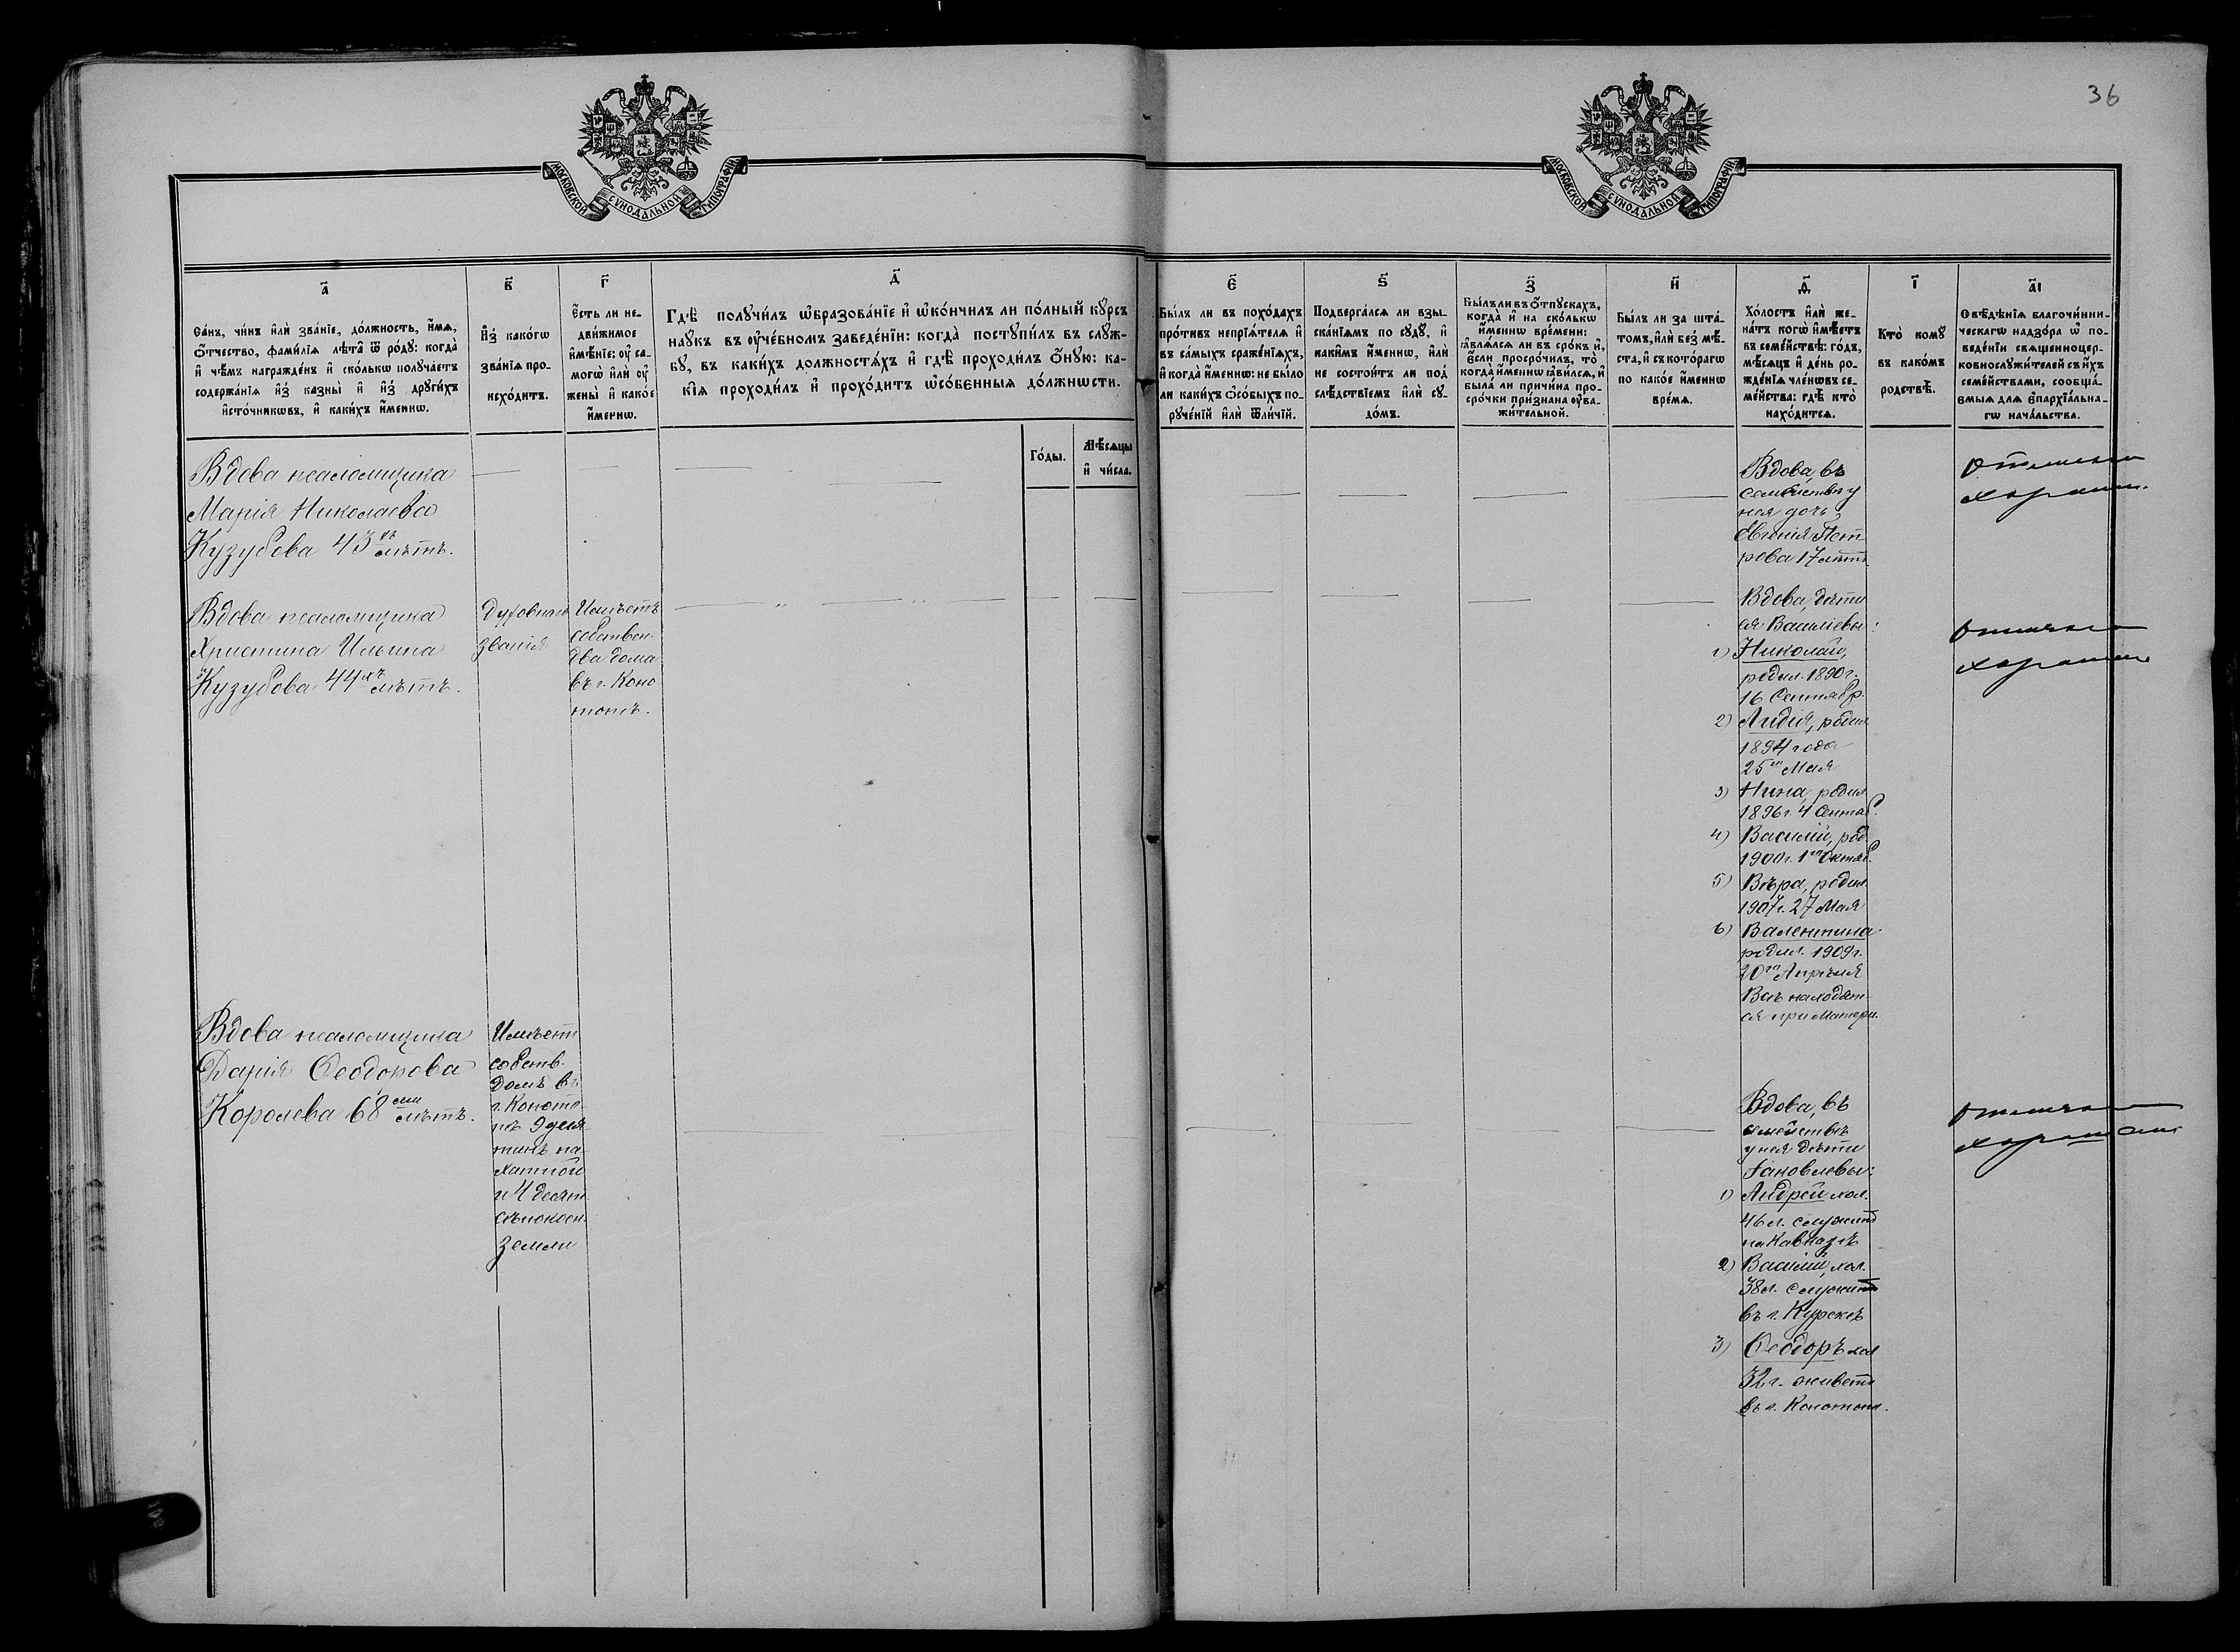 36
МОСКОВСКОЙ СѴНОДАЛЬНОЙ ТИПОГРАФІИ
МОСКОВСКОЙ СѴНОДАЛЬНОЙ ТИПОГРАФІИ
а҃
Са́нъ, чи́нъ и҆лѝ зва́нїе, до́лжность, и҆́мѧ,
ѻ҆́тчество, фами́лїѧ лѣ́та ѿ ро́дꙋ: когда̀
и҆ чѣ́мъ награжде́нъ и҆ ско́лькѡ полꙋча́етъ
содержа́нїѧ и҆з̾ казны̀ и҆ и҆з̾ дрꙋги́хъ
и҆сто́чникѡвъ, и҆ каки́хъ и҆́меннѡ.
в҃
И҆з̾ како́гѡ
зва́нїѧ про-
исхо́дитъ.
г҃
Є҆́сть ли не-
дви́жимое
и҆мѣ́нїе: ᲂу҆ са-
могѡ̀ и҆лѝ ᲂу҆
жены̀ и҆ како́е
и҆́меннѡ.
д҃
Гдѣ̀ полꙋчи́лъ ѡ҆бразова́нїе и҆ ѡ҆ко́нчилъ ли по́лный кꙋ́рсъ
наꙋ́къ въ ᲂу҆че́бномъ заведе́нїи: когда̀ постꙋпи́лъ въ слꙋ́ж-
бꙋ, въ каки́хъ должностѧ́хъ и҆ гдѣ̀ проходи́лъ ѻ҆́нꙋю: ка-
кі́ѧ проходи́лъ и҆ прохо́дитъ ѡ҆со́бєнныѧ до́лжнѡсти.
Го́ды.
Мѣ́сѧцы
и҆ чи́сла.
є҃
Бы́лъ ли въ похо́дахъ
про́тивъ непрїѧ́телѧ и҆
въ са́мыхъ сраже́нїѧхъ,
и҆ когда̀ и҆́меннѡ: не бы́ло
ли каки́хъ ѻ҆со́быхъ по-
рꙋче́нїй и҆лѝ ѿли́чїй.
ѕ҃
Подверга́лсѧ ли взы-
ска́нїѧмъ по сꙋдꙋ̀, и҆
каки̑мъ и҆́меннѡ, и҆лѝ
не состои́тъ ли под̾
слѣ́дствїемъ и҆лѝ сꙋ-
до́мъ.
з҃
Бы́лъ ли въ ѻ҆́тпꙋскахъ,
когда̀ и҆ на ско́лькѡ
и҆́меннѡ вре́мени:
ꙗ҆влѧ́лсѧ ли въ сро́къ и҆,
є҆́сли просро́чилъ, то̀
когда̀ и҆́меннѡ ꙗ҆ви́лсѧ, и҆
была̀ ли причи́на про-
сро́чки при́знана ᲂу҆ва-
жи́тельной.
и҃
Бы́лъ ли за шта́-
томъ, и҆лѝ без̾ мѣ́-
ста, и҆ съ кото́рагѡ
по како́е и҆́меннѡ
вре́мѧ.
ѳ҃
Хо́лостъ и҆лѝ же-
на́тъ когѡ̀ и҆мѣ́етъ
въ семе́йствѣ: го́дъ,
мѣ́сѧцъ и҆ де́нь ро-
жде́нїѧ чле́нѡвъ се-
ме́йства: гдѣ̀ кто̀
нахо́дитсѧ.
і҃
Кто̀ комꙋ̀
въ како́мъ
родствѣ̀.
а҃і
Свѣ́дѣнїѧ благочи́нни-
ческагѡ надзо́ра ѡ҆ по-
веде́нїи свѧще́нноцер-
ковнослꙋжи́телей съ и҆́хъ
семе́йствами, сообща́-
ємыѧ для є҆парxїа́льна-
гѡ нача́льства.
Вдова псаломщика
Марія Николаева
Кузубова 43хъ лѣтъ.
Вдова, въ
семействѣ у
нея дочь
Евгенія Пет
рова 17 лѣтъ
Отлично
хорошаго
Вдова псаломщика
Христина Ильина
Кузубова 44хъ лѣтъ.
Духовнаго
званія
Имѣетъ
собствен.
два дома
въ г. Коно
топѣ.
Вдова, дѣти
ея Василіевы:
1) Николай,
родил. 1890 г.
16 Сентябр.
2) Лидія, родил
1894 года
25го Мая
3) Нина, родил
1896 г. 4 Сентяб.
4) Василій, род.
1900 г. 1го Октяб.
5) Вѣра, родил.
1907 г. 27 Мая
6) Валентина
родил. 1909 г.
20го Апрѣля
Всѣ находят-
ся при Матери.
отлично
хорошаго
Вдова псаломщика
Дарія Ѳеодорова
Королева 68ми лѣтъ.
Имѣетъ
собств.
домъ въ
г. Коното-
пѣ 9 деся-
тинъ па-
хатной
и 4 десят.
сѣнокосн.
земли
Вдова, въ
семействѣ
у нея дѣти
Іаковлевы:
1) Андрей хол.
46 л. служитъ
на Кавказѣ
2) Василій, хол.
38 л. служитъ
въ г. Курскѣ
3) Ѳеодоръ хол
32 г. живетъ
въ г. Конотопѣ.
отлично
хорошаго